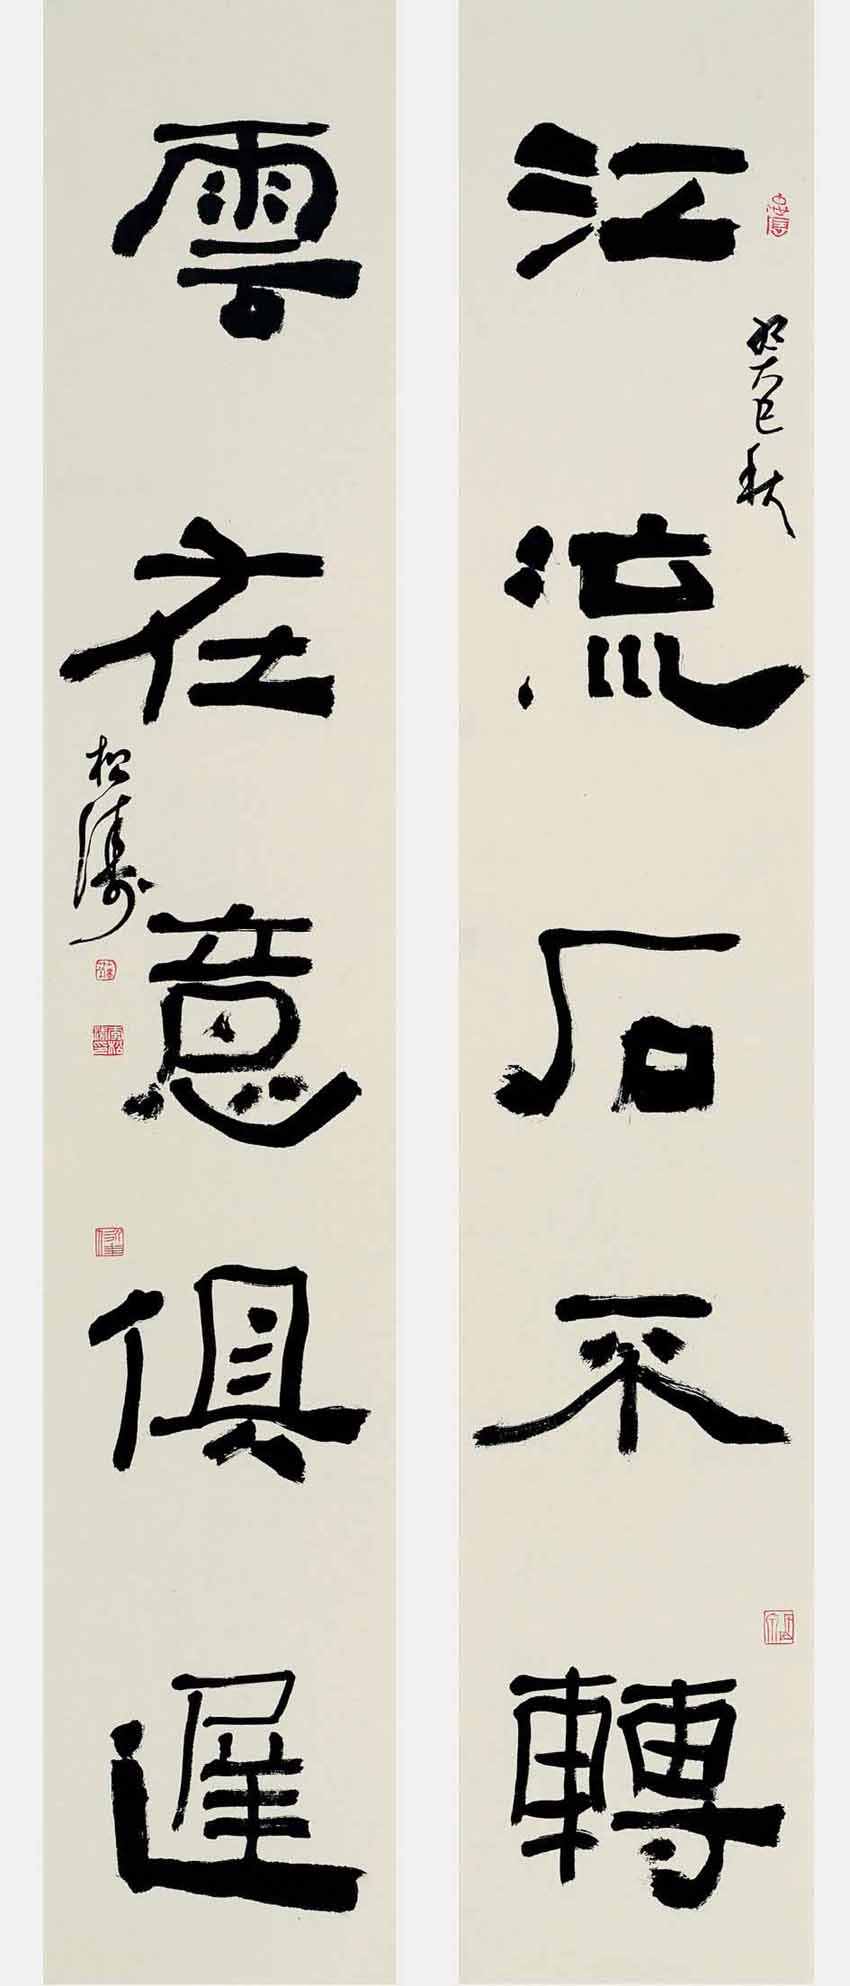 江流石不轉
癸巳秋
雲在意俱遲
松濤